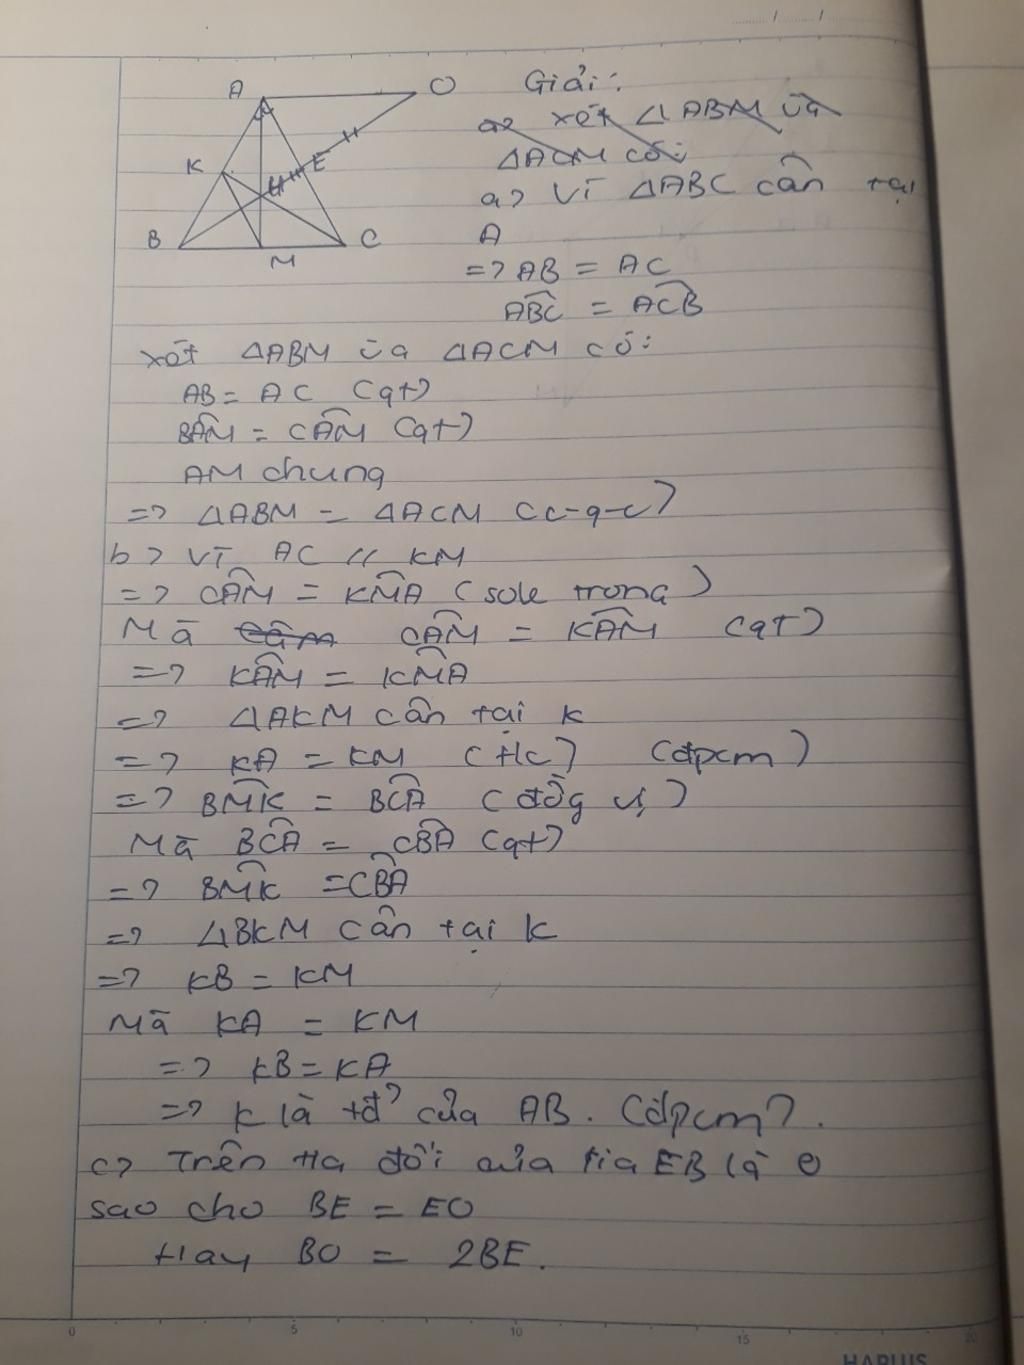 A
O
K
E
H
B
C
M
Giải:
a> xét △ABM và
△ACM có:
a> Vì △ABC cân tại
A
=> AB = AC
ABC = ACB
xét △ABM và △ACM có:
AB = AC (gt)
BAM = CAM (gt)
AM chung
=> △ABM = △ACM (c-g-c)
b> Vì AC // KM
=> CAM = KMA (sole trong)
Mà CAM = KAM (gt)
=> KAM = KMA
=> △AKM cân tại K
=> KA = KM (t/c) (đpcm)
=> BMK = BCA (đồg vị)
Mà BCA = CBA (gt)
=> BMK = CBA
=> △BKM cân tại K
=> KB = KM
Mà KA = KM
=> KB = KA
=> K là tđ' của AB. (đpcm).
c> Trên tia đối của tia EB là O
sao cho BE = EO
Hay BO = 2BE.
0 5 10 15 20
HAPLUS